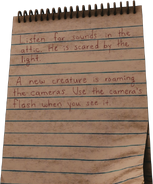 Listen for sounds in the
attic. He is scared by the
light.
A new creature is roaming
the cameras. Use the camera's
flash when you see it.